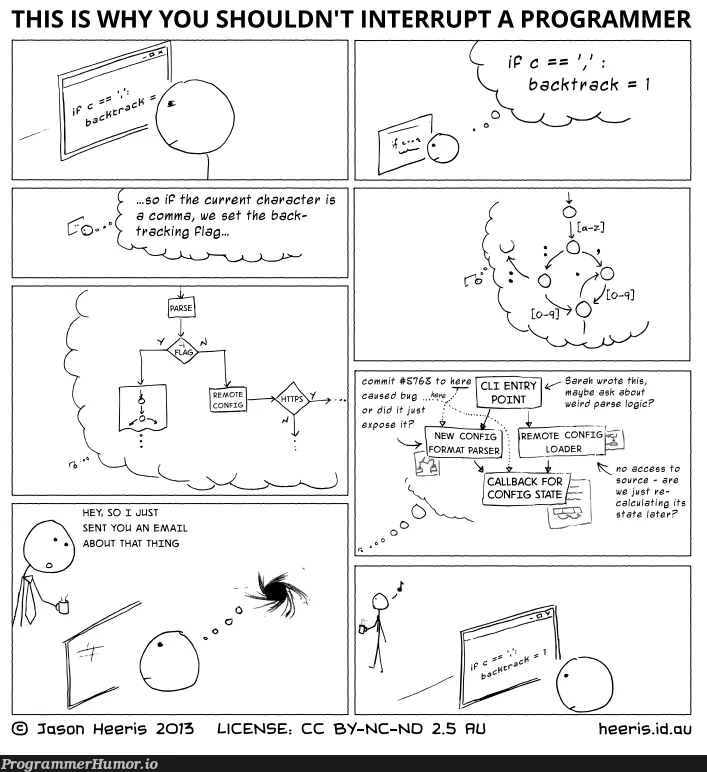 THIS IS WHY YOU SHOULDN'T INTERRUPT A PROGRAMMER
if c == ',':
backtrack =
if c == ',' :
backtrack = 1
...so if the current character is
a comma, we set the back-
tracking flag...
[a-z]
:
,
:
.
[0-9]
[0-9]
PARSE
Y
-i
FLAG
N
REMOTE
CONFIG
HTTPS
Y
N
commit #5763 to here
caused bug
or did it just
expose it?
here
CLI ENTRY
POINT
Sarah wrote this,
maybe ask about
weird parse logic?
NEW CONFIG
FORMAT PARSER
REMOTE CONFIG
LOADER
CALLBACK FOR
CONFIG STATE
no access to
source - are
we just re-
calculating its
state later?
HEY, SO I JUST
SENT YOU AN EMAIL
ABOUT THAT THING
if c == ',':
backtrack = 1
© Jason Heeris 2013 LICENSE: CC BY-NC-ND 2.5 AU heeris.id.au
ProgrammerHumor.io